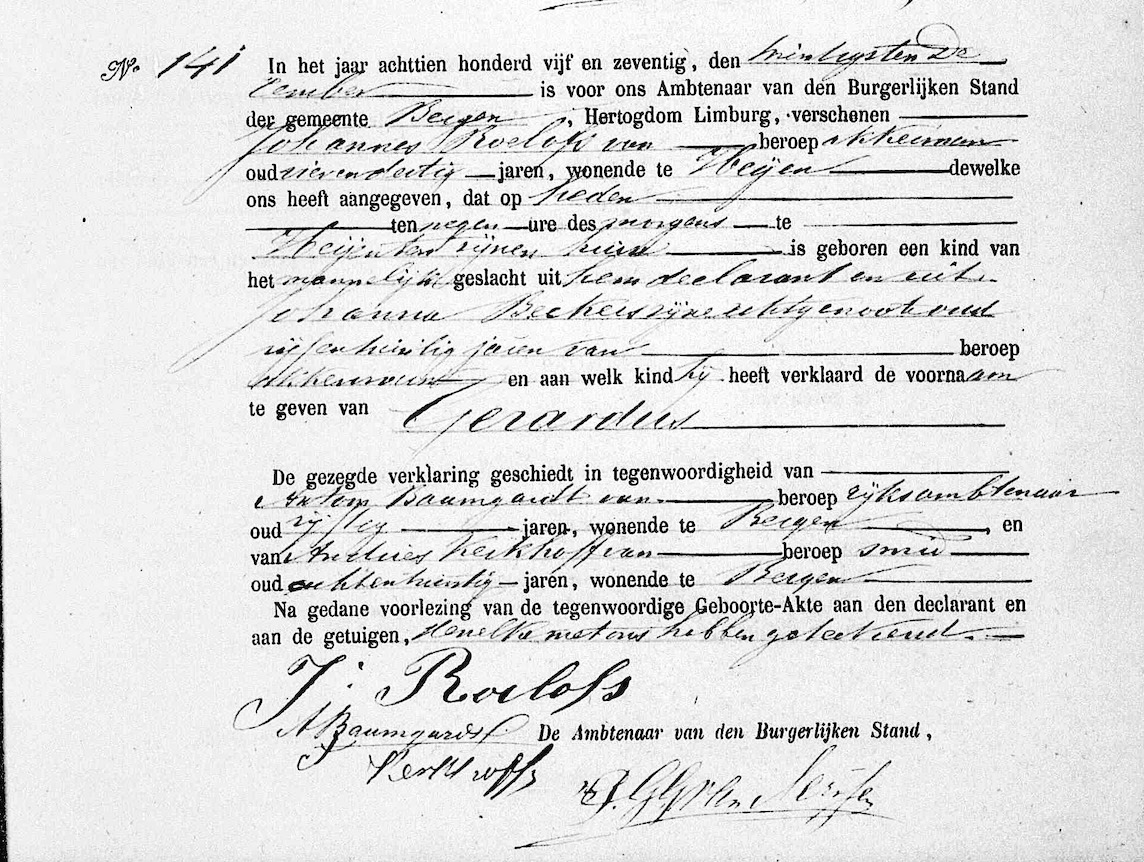 No. 141 In het jaar achttien honderd vijf en zeventig, den twintigsten De
cember is voor ons Ambtenaar van den Burgerlijken Stand
der gemeente Bergen, Hertogdom Limburg, verschenen
Johannes Roelofs van beroep akkerman
oud vierendertig jaren, wonende te Heijen dewelke
ons heeft aangegeven, dat op heden
ten negen ure des morgens te
Heijen ten zijnen huize is geboren een kind van
het mannelijk geslacht uit hem declarant en uit
Johanna Beckers zijne echtgenoot oud
vijfentwintig jaren van beroep
en aan welk kind hij heeft verklaard de voornaam
te geven van Gerardus
De gezegde verklaring geschiedt in tegenwoordigheid van
Antoon Baumgardt van beroep rijksambtenaar
oud vijftig jaren, wonende te Bergen, en
van Andries Kerkhoff van beroep smid
oud achtentwintig jaren, wonende te Bergen
Na gedane voorlezing van de tegenwoordige Geboorte-Akte aan den declarant en
aan de getuigen, dewelke met ons hebben geteekend.
J. Roelofs
A Baumgardt De Ambtenaar van den Burgerlijken Stand,
Kerkhoffs